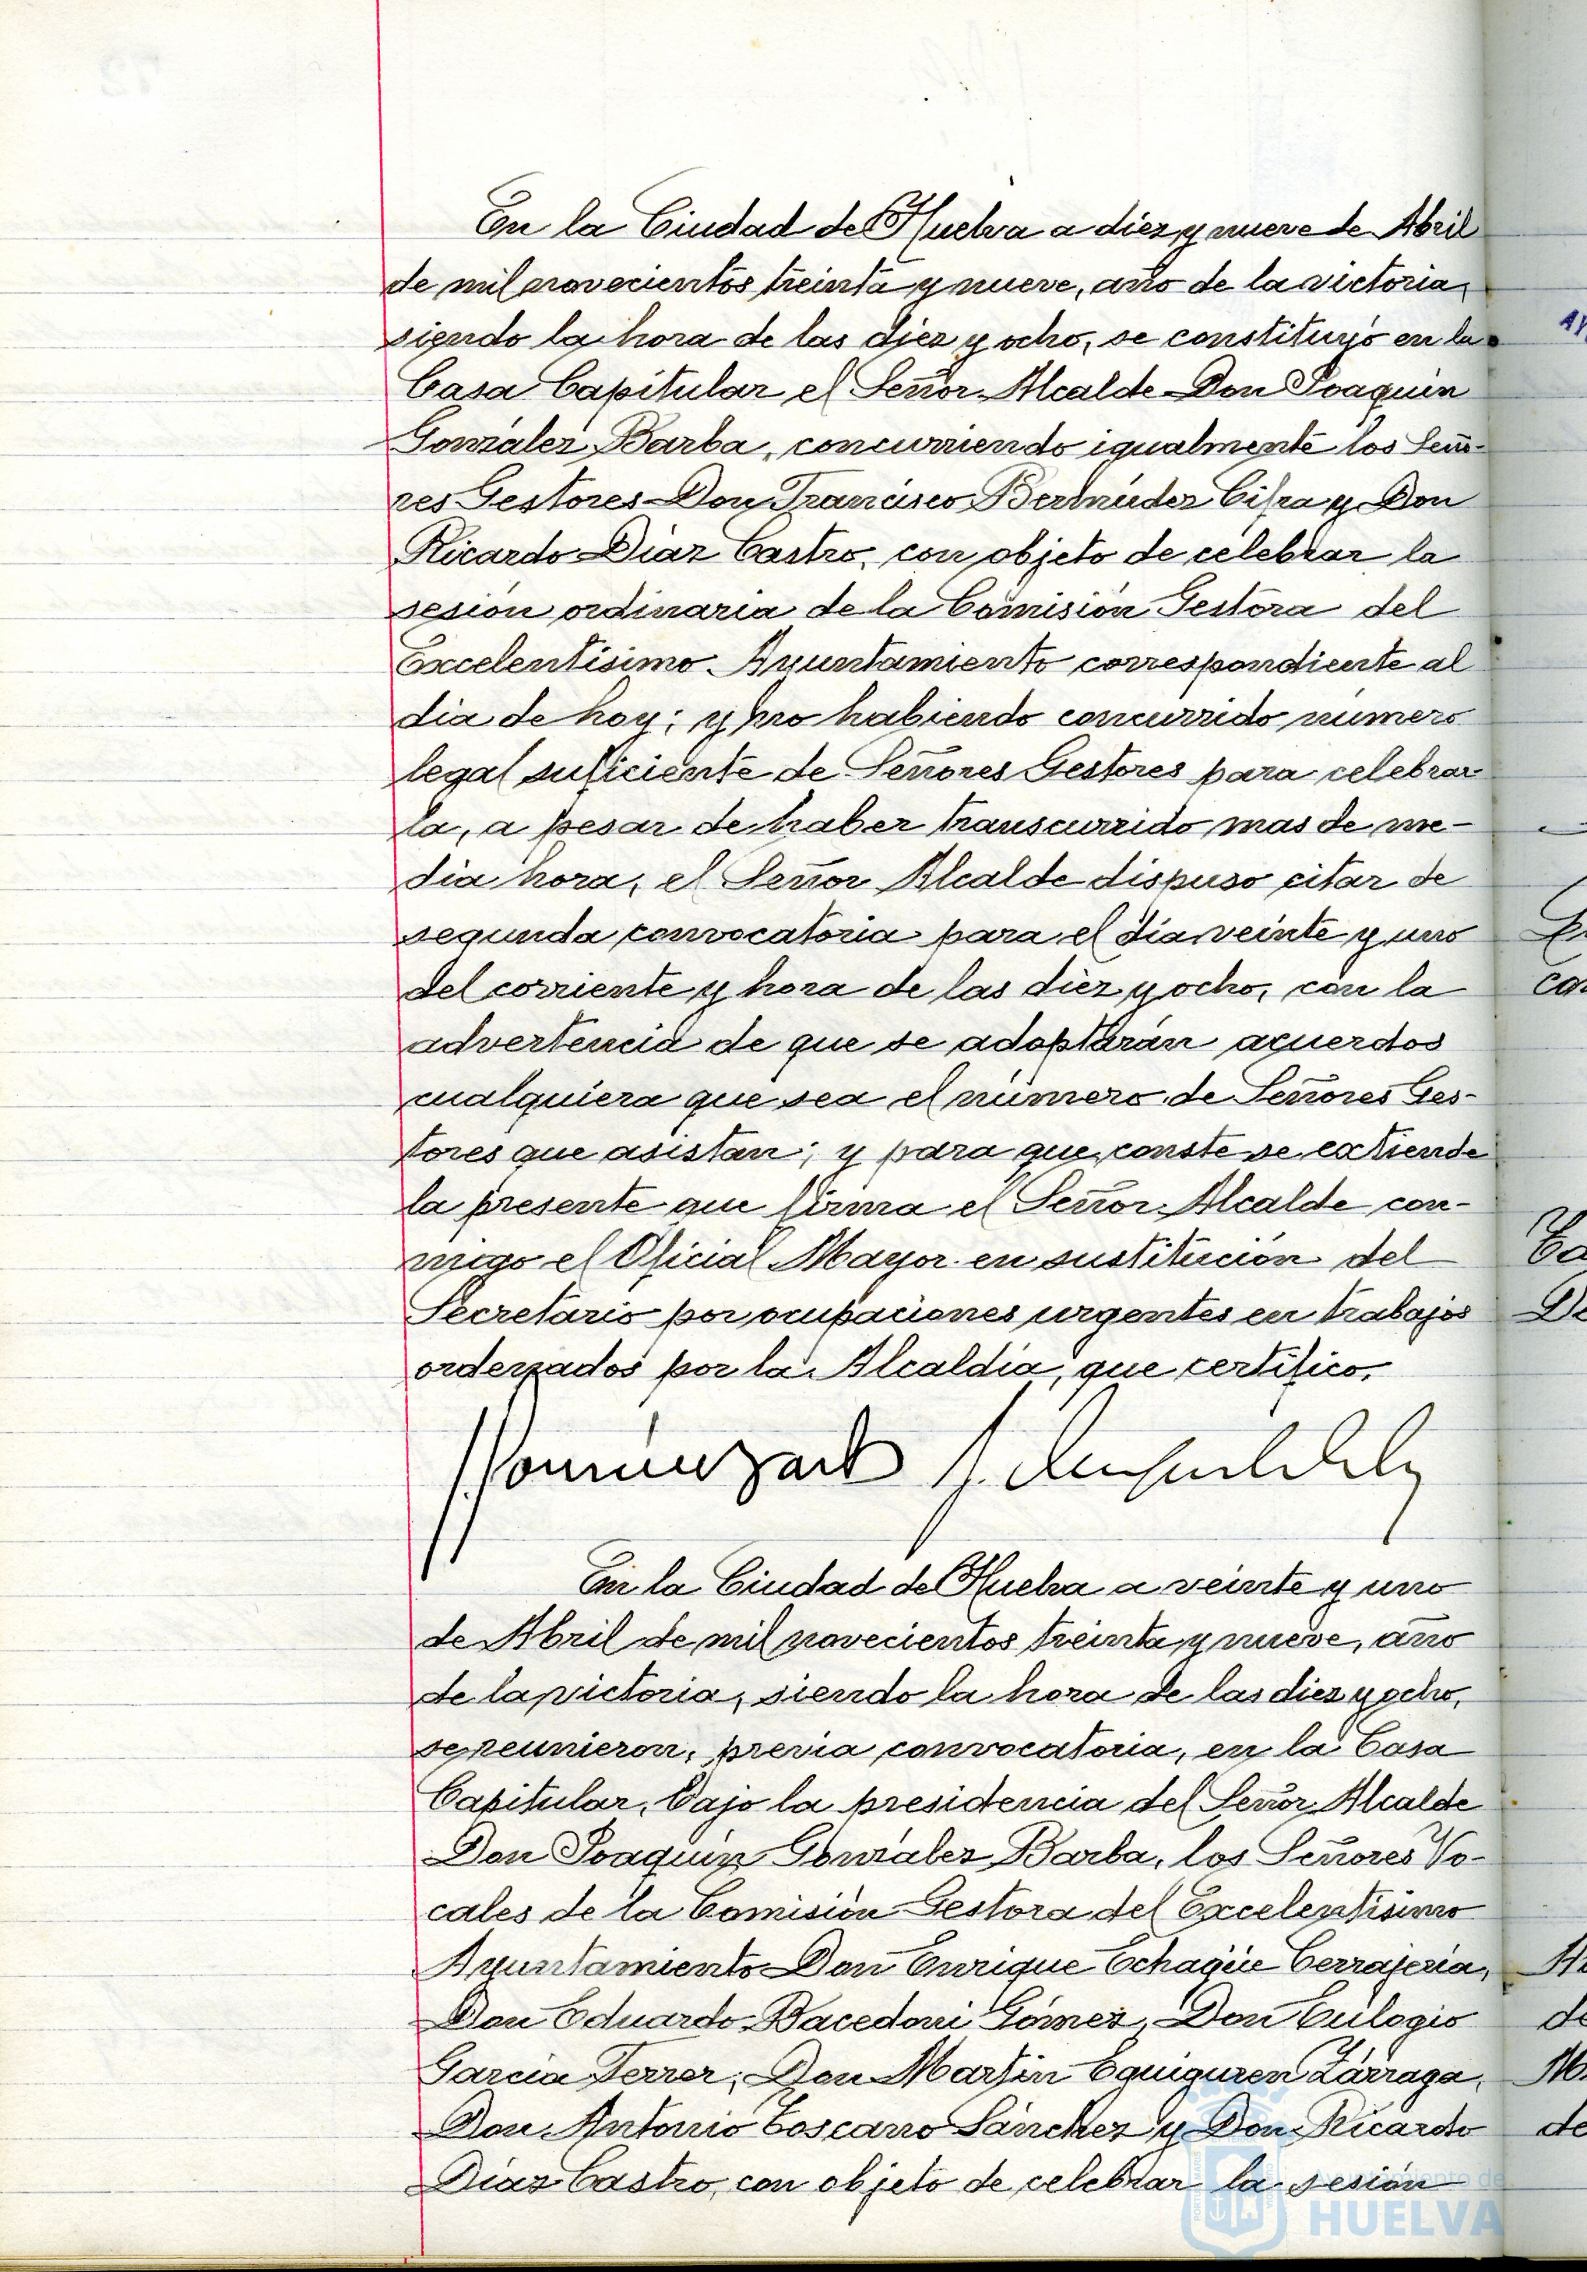 En la Ciudad de Huelva a diez y nueve de Abril
de mil novecientos treinta y nueve, año de la victoria,
siendo la hora de las diez y ocho, se constituyó en la
Casa Capitular el Señor Alcalde Don Joaquín
González Barba, concurriendo igualmente los Seño-
res Gestores Don Francisco Bermúdez Cifra y Don
Ricardo Díaz Castro, con objeto de celebrar la
sesión ordinaria de la Comisión Gestora del
Excelentísimo Ayuntamiento correspondiente al
día de hoy; y no habiendo concurrido número
legal suficiente de Señores Gestores para celebrar
la, a pesar de haber transcurrido mas de me-
dia hora, el Señor Alcalde dispuso citar de
segunda convocatoria para el día veinte y uno
del corriente y hora de las diez y ocho, con la
advertencia de que se adoptarán acuerdos
cualquiera que sea el número de Señores Ges-
tores que asistan; y para que conste se extiende
la presente que firma el Señor Alcalde con-
migo el Oficial Mayor en sustitución del
Secretario por ocupaciones urgentes en trabajos
ordenados por la Alcaldía, que certifico.
En la Ciudad de Huelva a veinte y uno
de Abril de mil novecientos treinta y nueve, año
de la victoria, siendo la hora de las diez y ocho,
se reunieron, previa convocatoria, en la Casa
Capitular, bajo la presidencia del Señor Alcalde
Don Joaquín González Barba, los Señores Vo-
cales de la Comisión Gestora del Excelentísimo
Ayuntamiento Don Enrique Echagüe Cerrajería,
Don Eduardo Bacedoni Gómez, Don Eulogio
García Ferrer, Don Martín Eguiguren Zárraga,
Don Antonio Toscano Sánchez y Don Ricardo
Díaz Castro, con objeto de celebrar la sesión
Ayuntamiento de
HUELVA